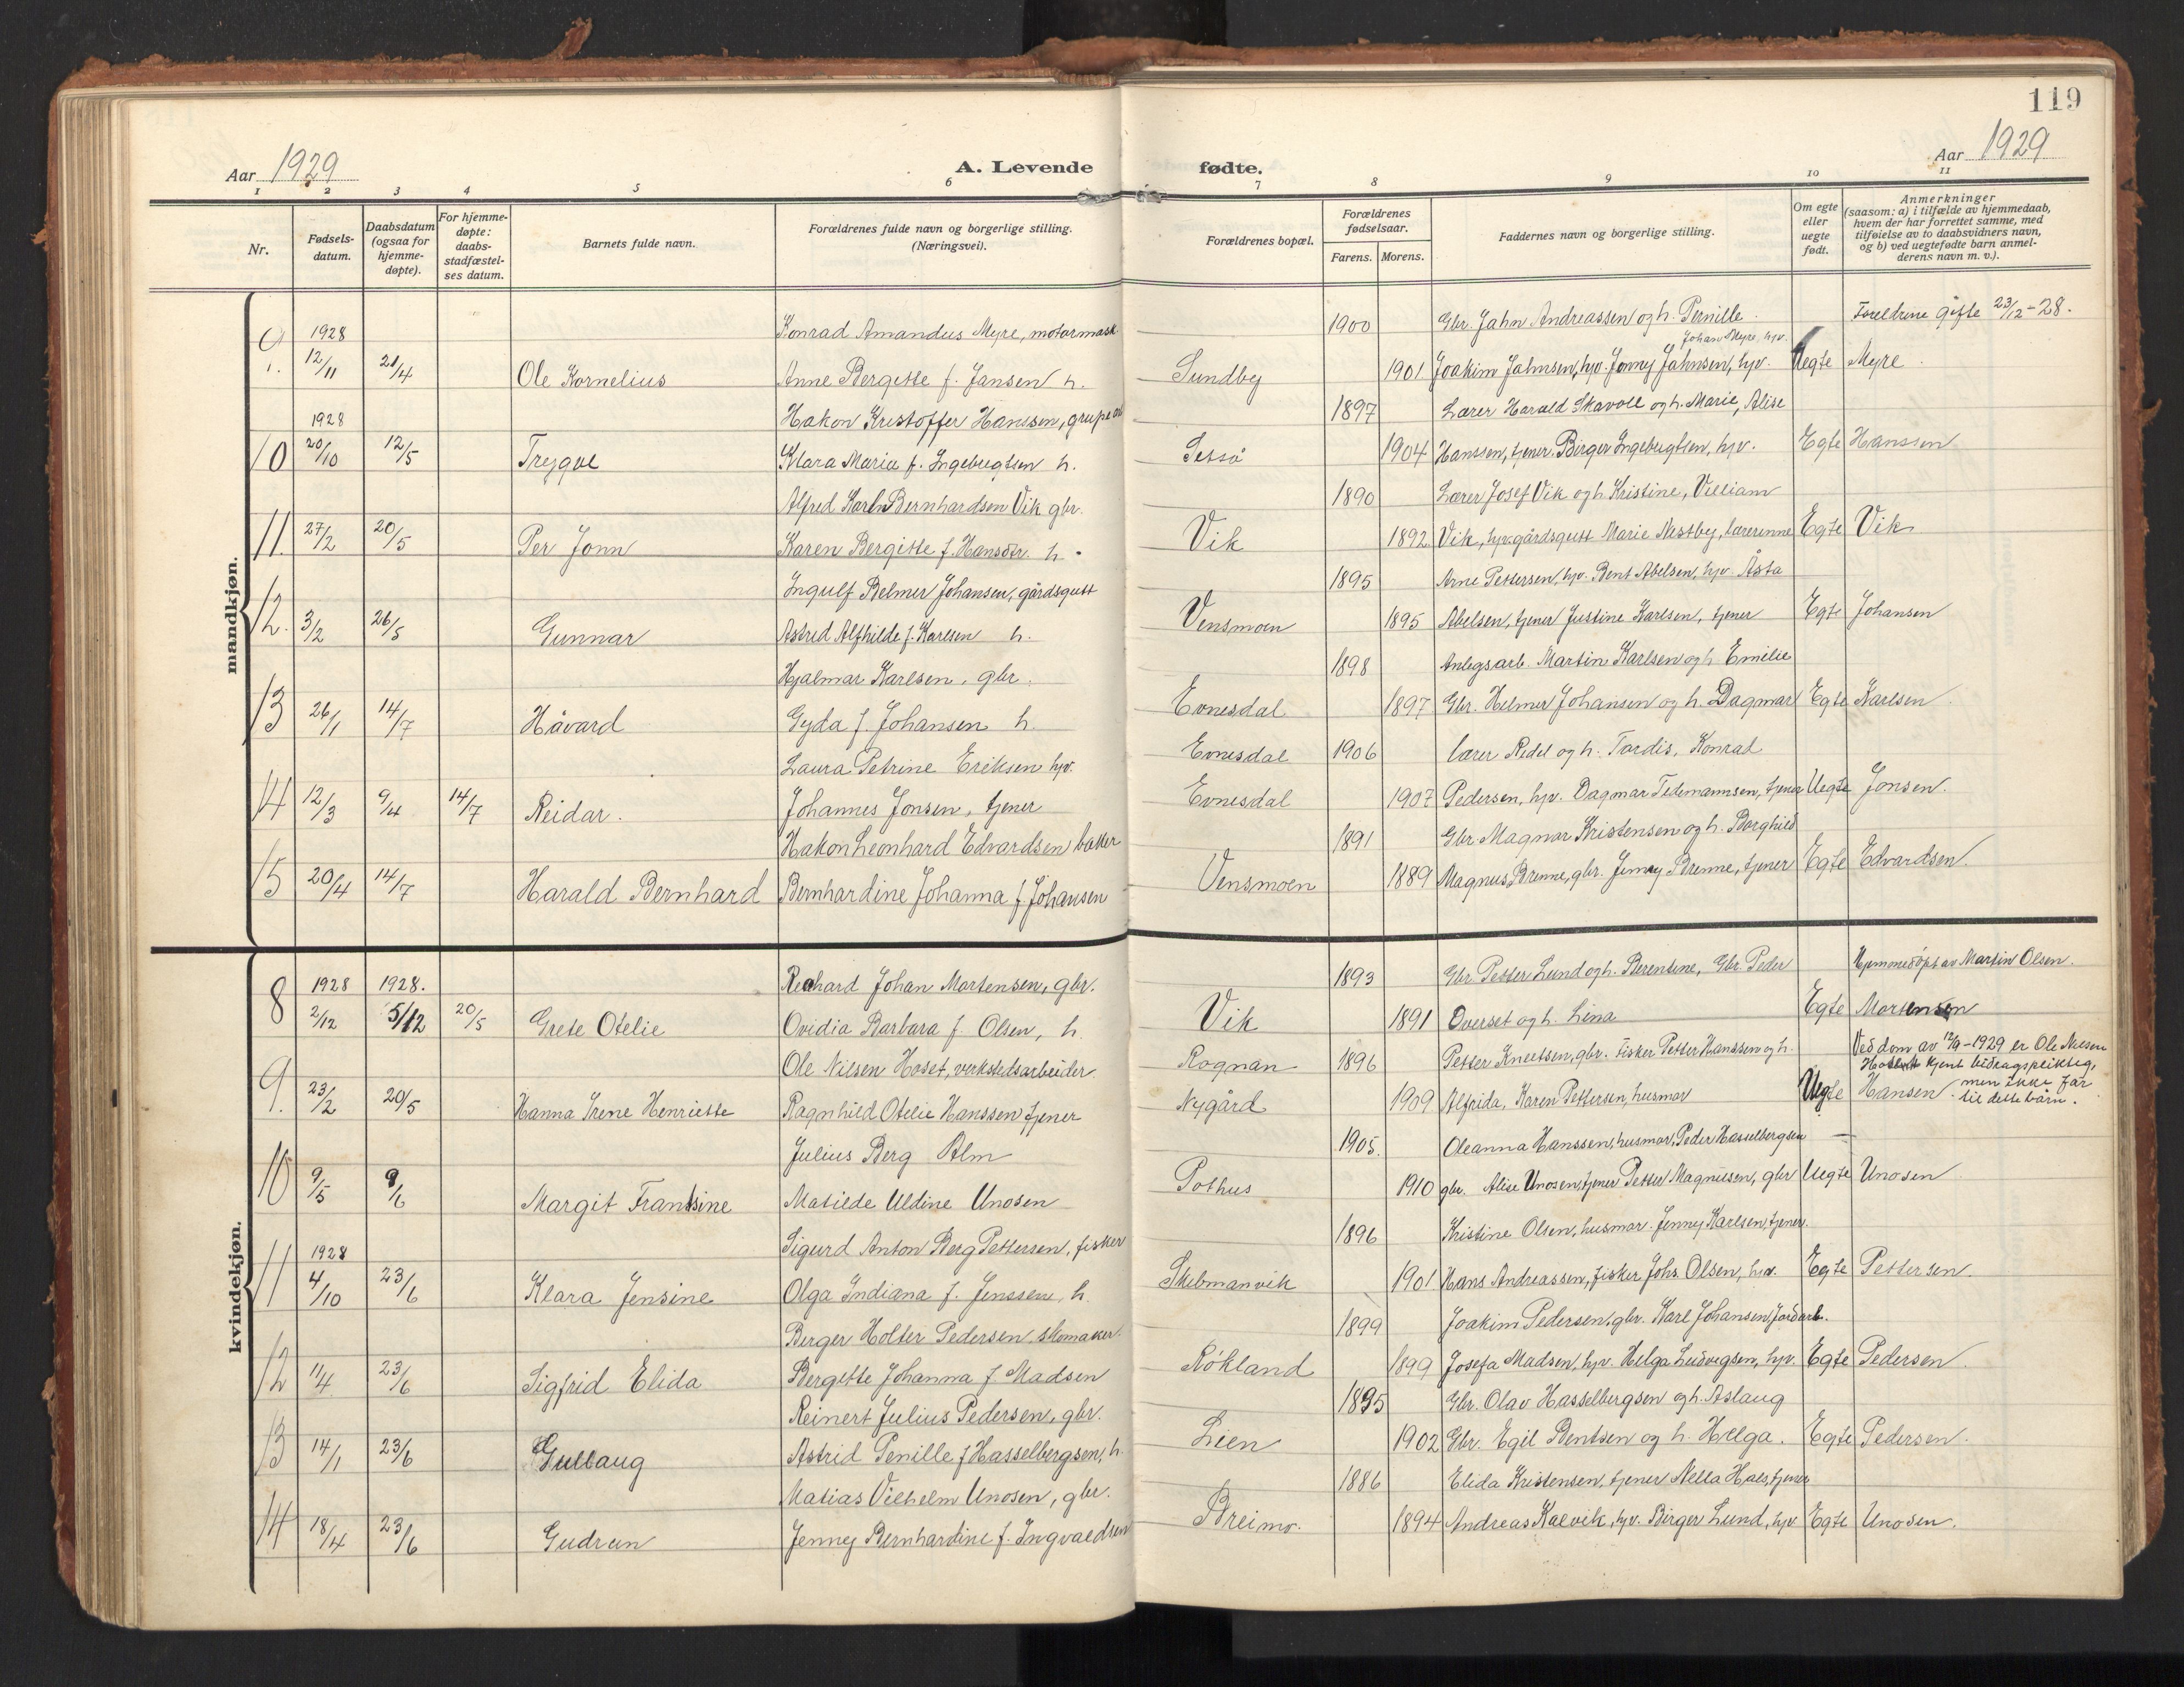 119
Aar 1929
A. Levende fødte.
Aar 1929
1 2 3 4 5 6 7 8 9 10 11
Nr.
Fødsels-
datum.
Daabsdatum
(ogsaa for
hjemme-
døpte).
For hjemme-
døpte:
daabs-
stadfæstel-
ses datum.
Barnets fulde navn.
Forældrenes fulde navn og borgerlige stilling.
(Næringsvei).
Forældrenes bopæl.
Forældrenes
fødselsaar.
Farens. Morens.
Faddernes navn og borgerlige stilling.
Om egte
eller
uegte
født.
Anmerkninger
(saasom: a) i tilfælde av hjemmedaab,
hvem der har forrettet samme, med
tilføielse av to daabsvidners navn,
og b) ved uegtefødte barn anmel-
derens navn m. v.).
mandkjøn.
9 1928 Konrad Amandus Myre, motormask 1900 Gbr. Jahn Andreassen og h. Pernille. Foreldrene gifte 23/12-28.
Johan Myre hjv.
12/11 21/4 Ole Kornelius Anne Bergitte f. Jansen h. Sundby 1901 Joakim Jahnsen, hjv. Jonny Jahnsen, hjv. Uegte Myre
1928 Hakon Kristoffer Hanssen, grupearb 1897 Lærer Harald Skavoll og h. Marie, Alise
10 20/10 12/5 Trygve Klara Maria f. Ingebrigtsen h. Setså 1904 Hanssen, tjener. Birger Ingebrigtsen, hjv. Egte Hanssen
Alfred Karl Bernhardsen Vik gbr. 1890 Lærer Josef Vik og h. Kristine, Villiam
11. 27/2 20/5 Per Jonn Karen Bergitte f. Hansdtr. h. Vik 1892 Vik, hjv. gårdsgutt Marie Nestby, lærerinne Egte Vik
Ingulf Belmer Johansen, gårdsgutt 1895 Arne Pettersen, hjv. Bent Abelsen, hjv. Åsta
12. 3/2 26/5 Gunnar Astrid Alfhilde f. Karlsen h. Vensmoen 1895 Abelsen, tjener Justine Karlsen, tjener Egte Johansen
Hjalmar Karlsen, gbr. 1898 Anlegsarb. Martin Karlsen og h. Emilie
13 26/1 14/7 Håvard Gyda f. Johansen h. Evnesdal 1897 Gbr. Helmer Johansen og h. Dagmar Egte Karlsen
Laura Petrine Eriksen hjv. Evnesdal 1906 lærer Redel og h. Tordis, Konrad
14 12/3 9/4 14/7 Reidar. Johannes Jonsen, tjener Evnesdal 1907 Pedersen, hjv. Dagmar Tidemannsen, tjener Uegte Jonsen.
Hakon Leonhard Edvardsen baker 1891 Gbr. Magnar Kristensen og h. Borghild
15 20/4 14/7 Harald Bernhard Bernhardine Johanna f. Johansen Vensmoen 1889 Magnus Brenne, gbr. Jenny Brenne, tjener Egte Edvardsen
kvindekjøn.
1928 1928. Richard Johan Mortensen, gbr. 1893 Gbr. Petter Lund og h. Berentine, Gbr. Peder Hjemmedöpt av Martin Olsen.
8 2/12 5/12 20/5 Grete Otelie Ovidia Barbara f. Olsen, h. Vik 1891 Overset og h. Lina Egte Mortensen
Ole Nilsen Hoset, verkstedsarbeider Rognan 1896 Petter Knutsen, gbr. Fisker Petter Hanssen og h. Ved dom av 12/9-1929 er Ole Nilsen
Hoset kjent bidragspliktig,
9. 23/2 20/5 Hanna Irene Henriette Ragnhild Otelie Hanssen tjener Nygård 1909 Alfrida, Karen Pettersen, husmor Uegte Hansen. men ikke far
til dette barn.
Julius Berg Alm 1905. Oleanna Hanssen, husmor, Peder Hasselbergsen —
10 9/5 9/6 Margit Frantsine Matilde Uldine Unosen Pothus 1910 gbr. Alise Unosen, tjener Petter Magnussen, gbr Uegte Unosen
1928 Sigurd Anton Berg Pettersen, fisker 1896 Kristine Olsen, husmor. Jenny Karlsen, tjener.
11 4/10 23/6 Klara Jensine Olga Indiana f. Jenssen, h. Skebmanvik 1901 Hans Andreassen, fisker Johs. Olsen, hjv. Egte Pettersen.
Berger Holter Pedersen, skomaker. 1899 Joakim Pedersen, gbr. Karl Johansen, jordarb.
12 11/4 23/6 Sigfrid Elida Bergitte Johanna f. Madsen Røkland 1899 Josefa Madsen, hjv. Helga Ludvigsen, hjv. Egte Pedersen
Reinert Julius Pedersen, gbr. 1895 Gbr. Olav Hasselbergsen og h. Aslaug
13 14/1 23/6 Gullaug Astrid Penille f. Hasselbergsen, h. Lien 1902 Gbr. Egil Bentsen og h. Helga. Egte Pedersen
Matias Vilhelm Unosen, gbr. 1886 Elida Kristensen, tjener Nella Hals, tjener
14 18/4 23/6 Gudrun Jenney Bernhardine f. Ingvaldsen Breimo. 1894 Andreas Kalvik, hjv. Birger Lund, hjv Egte Unosen.